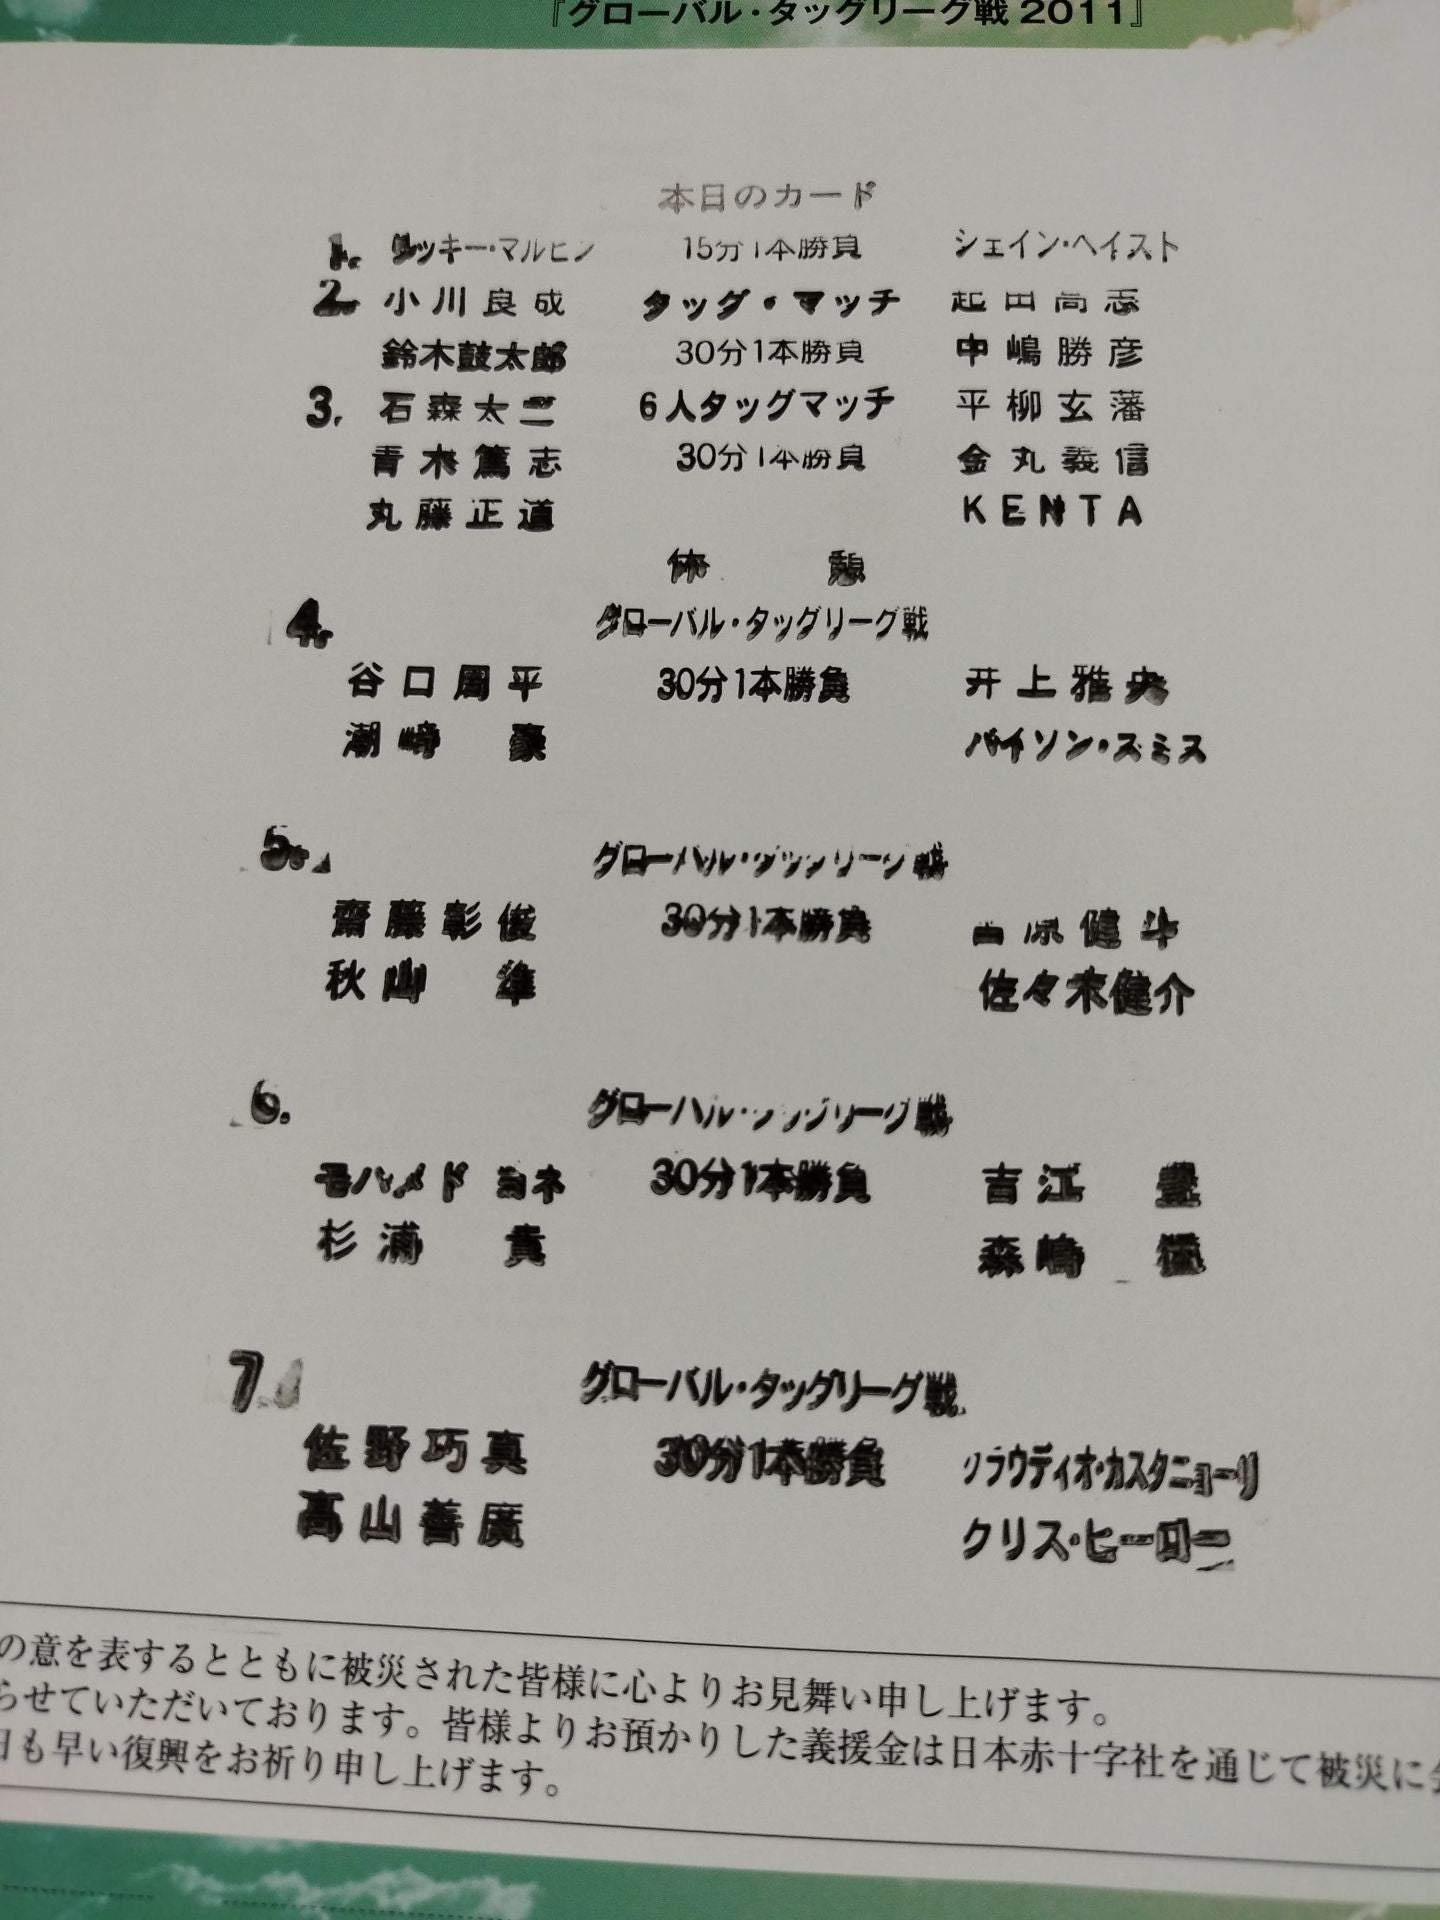 『グローバル・タッグリーグ戦 2011』
本日のカード
1. リッキー・マルビン 15分1本勝負 シェイン・ヘイスト
2. 小川良成 タッグ・マッチ 起田高志
鈴木鼓太郎 30分1本勝負 中嶋勝彦
3. 石森太二 6人タッグマッチ 平柳玄藩
青木篤志 30分1本勝負 金丸義信
丸藤正道 KENTA
休 憩
4. グローバル・タッグリーグ戦
谷口周平 30分1本勝負 井上雅央
潮﨑 豪 バイソン・スミス
5. グローバル・タッグリーグ戦
齋藤彰俊 30分1本勝負 宮原健斗
秋山 準 佐々木健介
6. グローバル・タッグリーグ戦
モハメド ヨネ 30分1本勝負 吉江 豊
杉浦 貴 森嶋 猛
7. グローバル・タッグリーグ戦
佐野巧真 30分1本勝負 クラウディオ・カスタニョーリ
高山善廣 クリス・ヒーロー
の意を表するとともに被災された皆様に心よりお見舞い申し上げます。
らせていただいております。皆様よりお預かりした義援金は日本赤十字社を通じて被災に
日も早い復興をお祈り申し上げます。